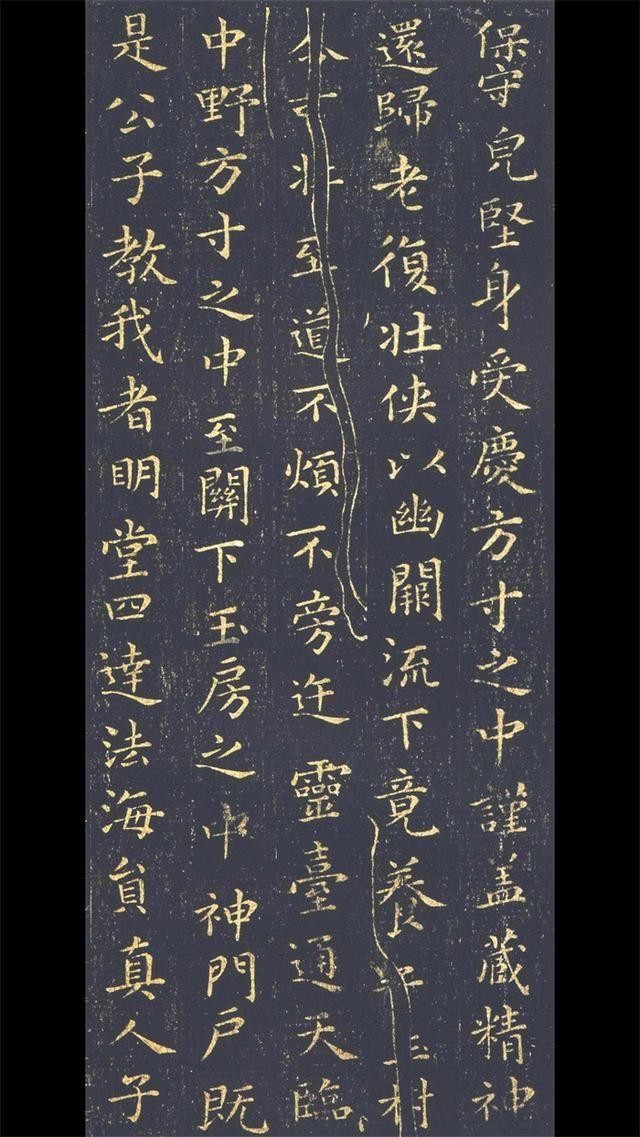 保守皃堅身受慶方寸之中謹盖藏精神
還歸老復壯俠以幽闕流下竟養村
至道不煩不旁迕靈臺通天臨
中野方寸之中至關下玉房之中神門戶既
是公子教我者眀堂四達法海貟真人子